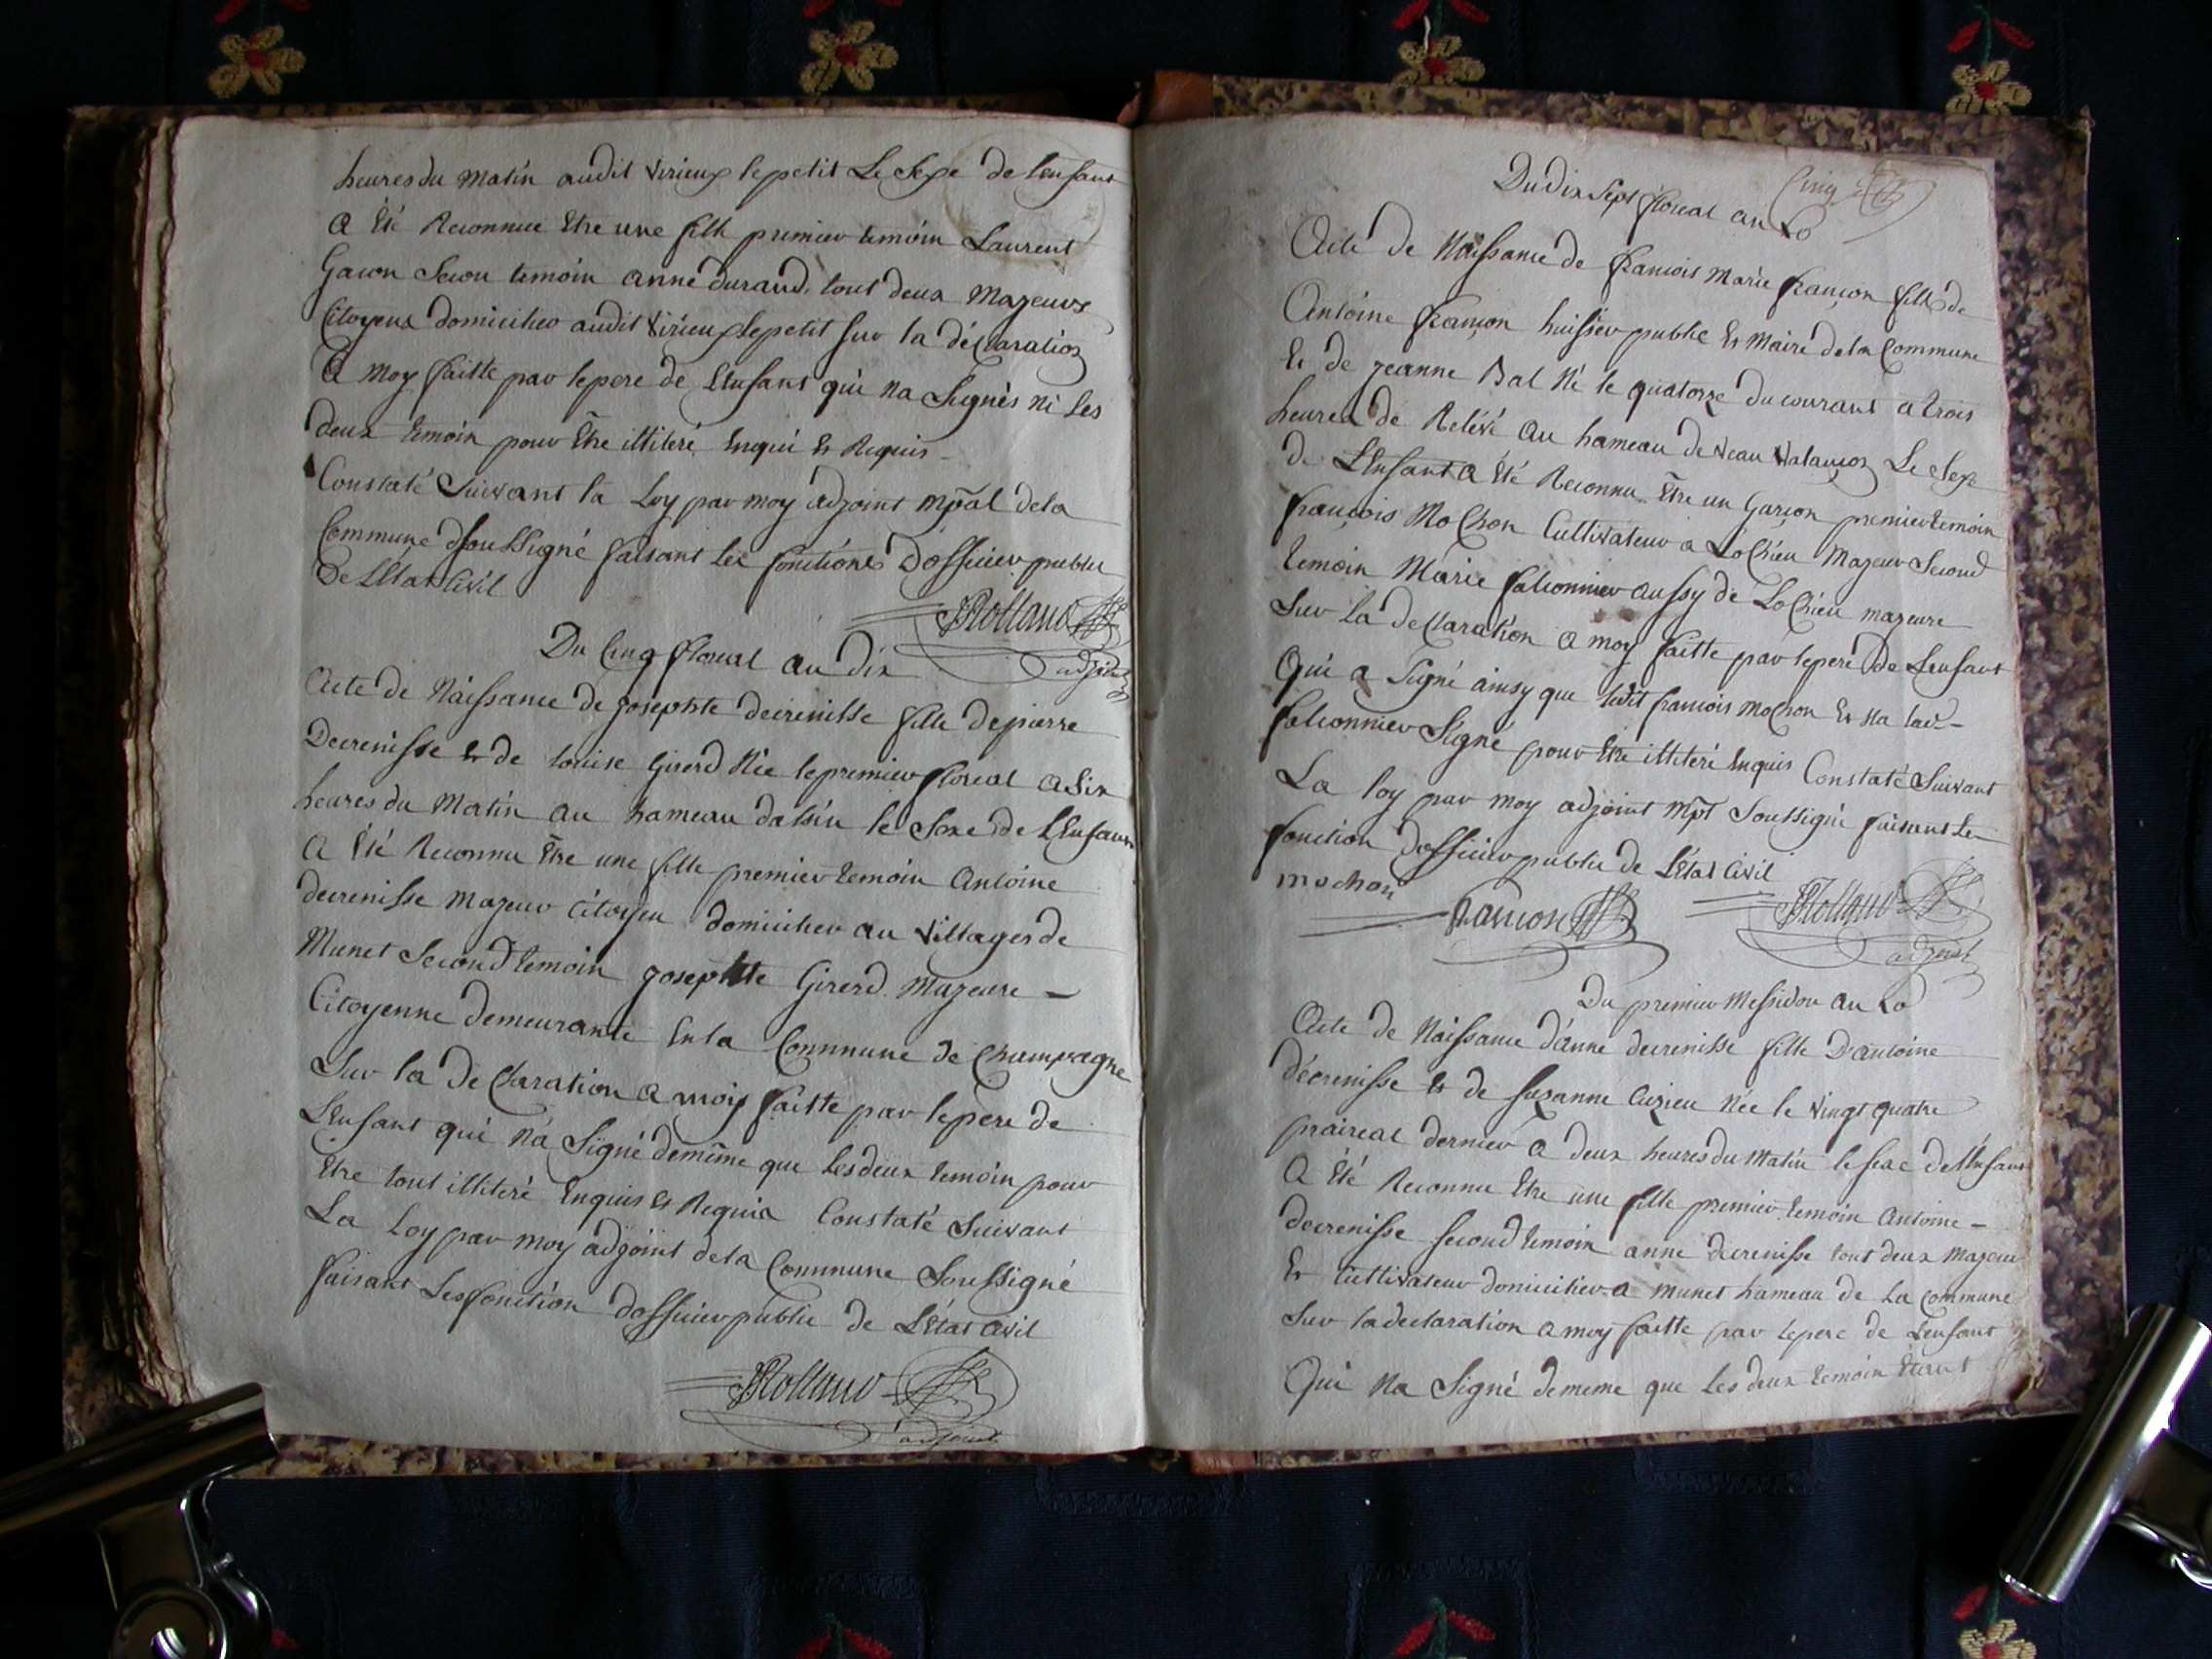 heures du matin audit virieux le petit Le Sexe de lenfant
a Été Reconnue Etre une fille premier temoin Laurent
Gacon Secon temoin anne durand, tout deux Majeurs
Citoyens domicilier audit Virieux lepetit sur la déclaration
a moy faitte par lepere de L'Enfant qui na Signés ni les
deux temoin pour Etre illiteré Enqui Et Requis
Constaté Suivant la Loy par moy adjoint mpal dela
Commune Soussigné faisant les fonctions d'officier public
De LEtat Civil
JRolland
adjoint
Du Cinq floreal an dix
Acte de Naissance de josephte decrenisse fille depierre
Decrenisse Et de louise Girerd Née lepremier floreal a Six
heures du Matin au hameau dassin le Sexe de LEnfant
a Été Reconnu Etre une fille premier temoin Antoine
decrenisse majeur Citoyen domicilier au Villages de
Munet Second temoin josephte Girerd Majeure
Citoyenne demeurante En la Commune de Champagne
Sur la declaration a moy faitte par lepere de
LEnfant qui na Signé demême que les deux temoin pour
Etre tout illiteré Enquis Et Requis Constaté Suivant
La Loy par moy adjoint dela Commune Soussigné
faisant Les fonction dofficier public de LEtat Civil
JRolland
adjoint
Cinq
Du dix Sept floreal an 10
Acte de Naissance de francois Marie françon fils de
Antoine françon huissier public Et Maire dela Commune
Et de jeanne Bal Né le quatorze du courant a trois
heures de Relevé au hameau de Veau Valançon Le Sexe
de LEnfant a Été Reconnu Etre un Garçon premier temoin
françois Mochon Cultivateur a Lochieu Majeur Second
temoin Marie falconnier aussy de Lochieu majeure
Sur la declaration a moy faitte par lepere de Lenfant
Qui a Signé ainsy que ledit francois mochon Et Na lad-
falconnier Signé pour Etre illiteré Enquis Constaté Suivant
La loy par moy adjoint mpl Soussigné faisant Le
fonction dofficier public de LEtat Civil
mochon
françon
JRolland
adjoint
Du premier Messidor an 10
Acte de Naissance d'anne decrenisse fille D'antoine
décrenisse Et de Suzanne Cuzieu Née le vingt quatre
praireal dernier a deux heures du Matin le sexe de lEnfant
a Été Reconnu Etre une fille premier temoin Antoine
decrenisse second temoin anne decrenisse tout deux Majeur
Et Cultivateur domicilier a munet hameau de La Commune
Sur la declaration a moy faitte par lepere de Lenfant
Qui Na Signé demême que Les deux temoin Etant